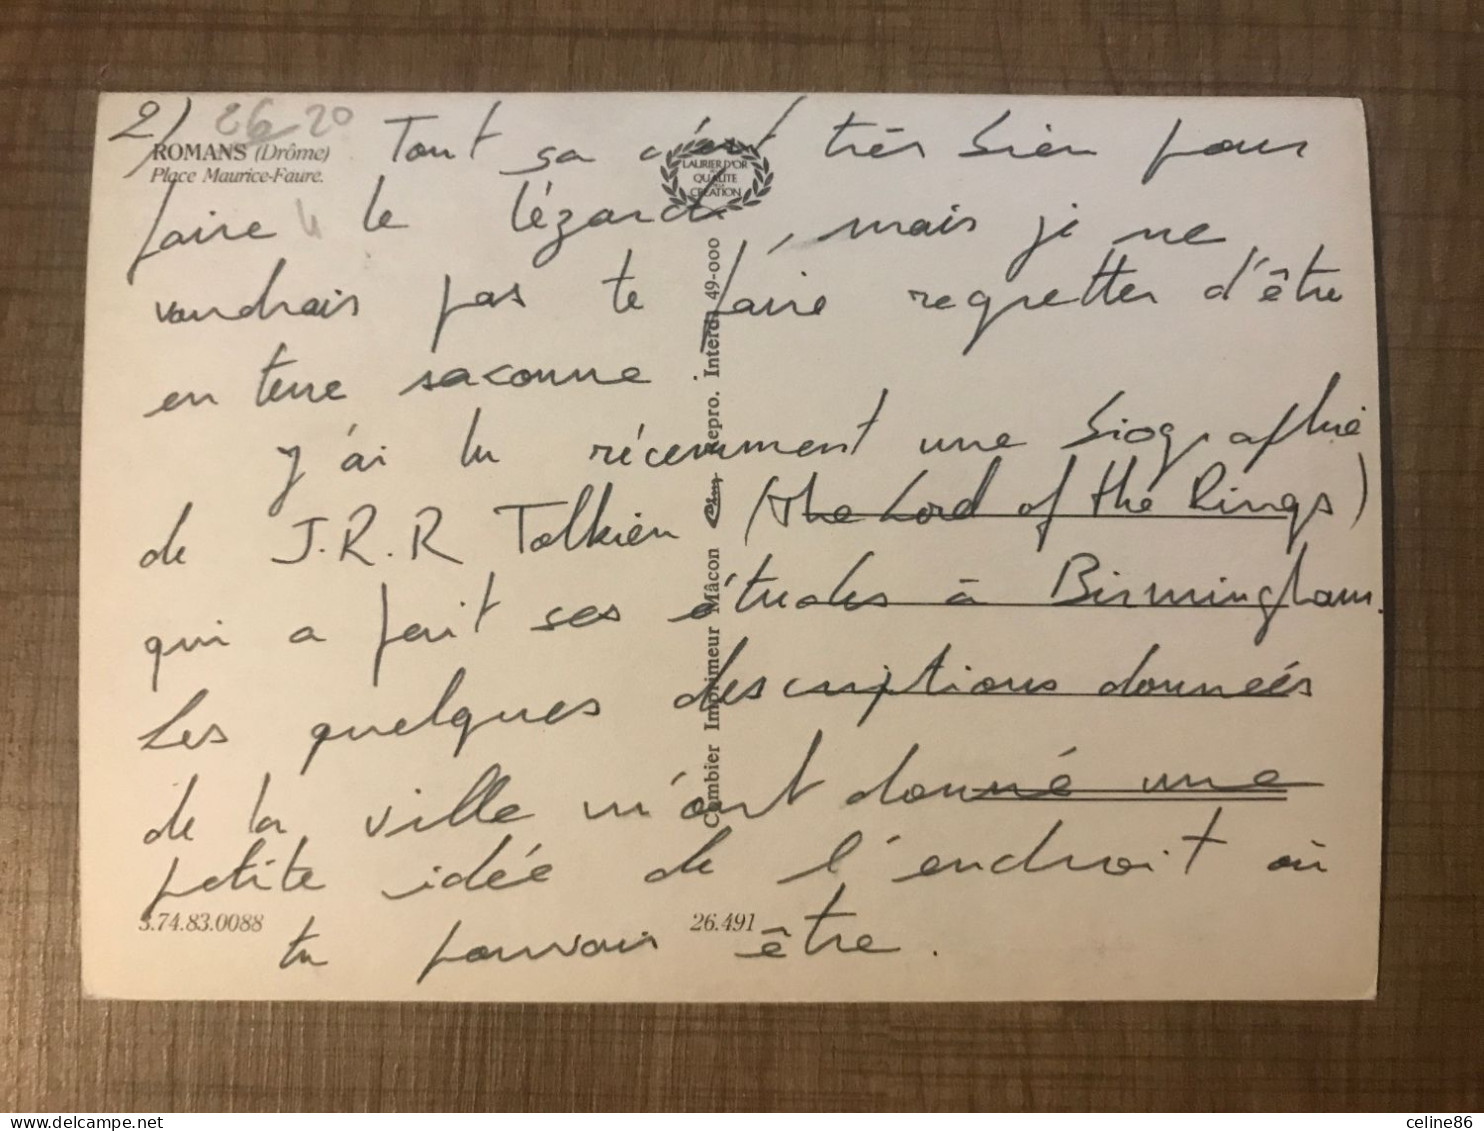 2) 26 20 Tout sa c'est très bien pour
ROMANS (Drôme)
Place Maurice-Faure.
LAURIER D'OR
QUALITE
CREATION
faire le lézard, mais je ne
voudrais pas te faire regretter d'être
en terre saxonne.
J'ai lu récemment une biographie
de J.R.R Tolkien (the Lord of the Rings)
qui a fait ses études à Birmingham.
Les quelques descriptions données
de la ville m'ont donné une
petite idée de l'endroit où
tu pouvais être.
3.74.83.0088
26.491
Combier Imprimeur Mâcon Cim Repro. Interd. 49-000
celine86